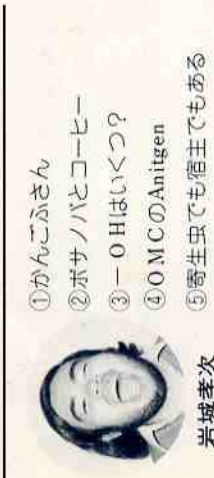 ①かんごふさん
②ボサノバとコーヒー
③－OHはいくつ？
④OMCのAnitgen
⑤寄生虫でも宿主でもある
岩城孝次